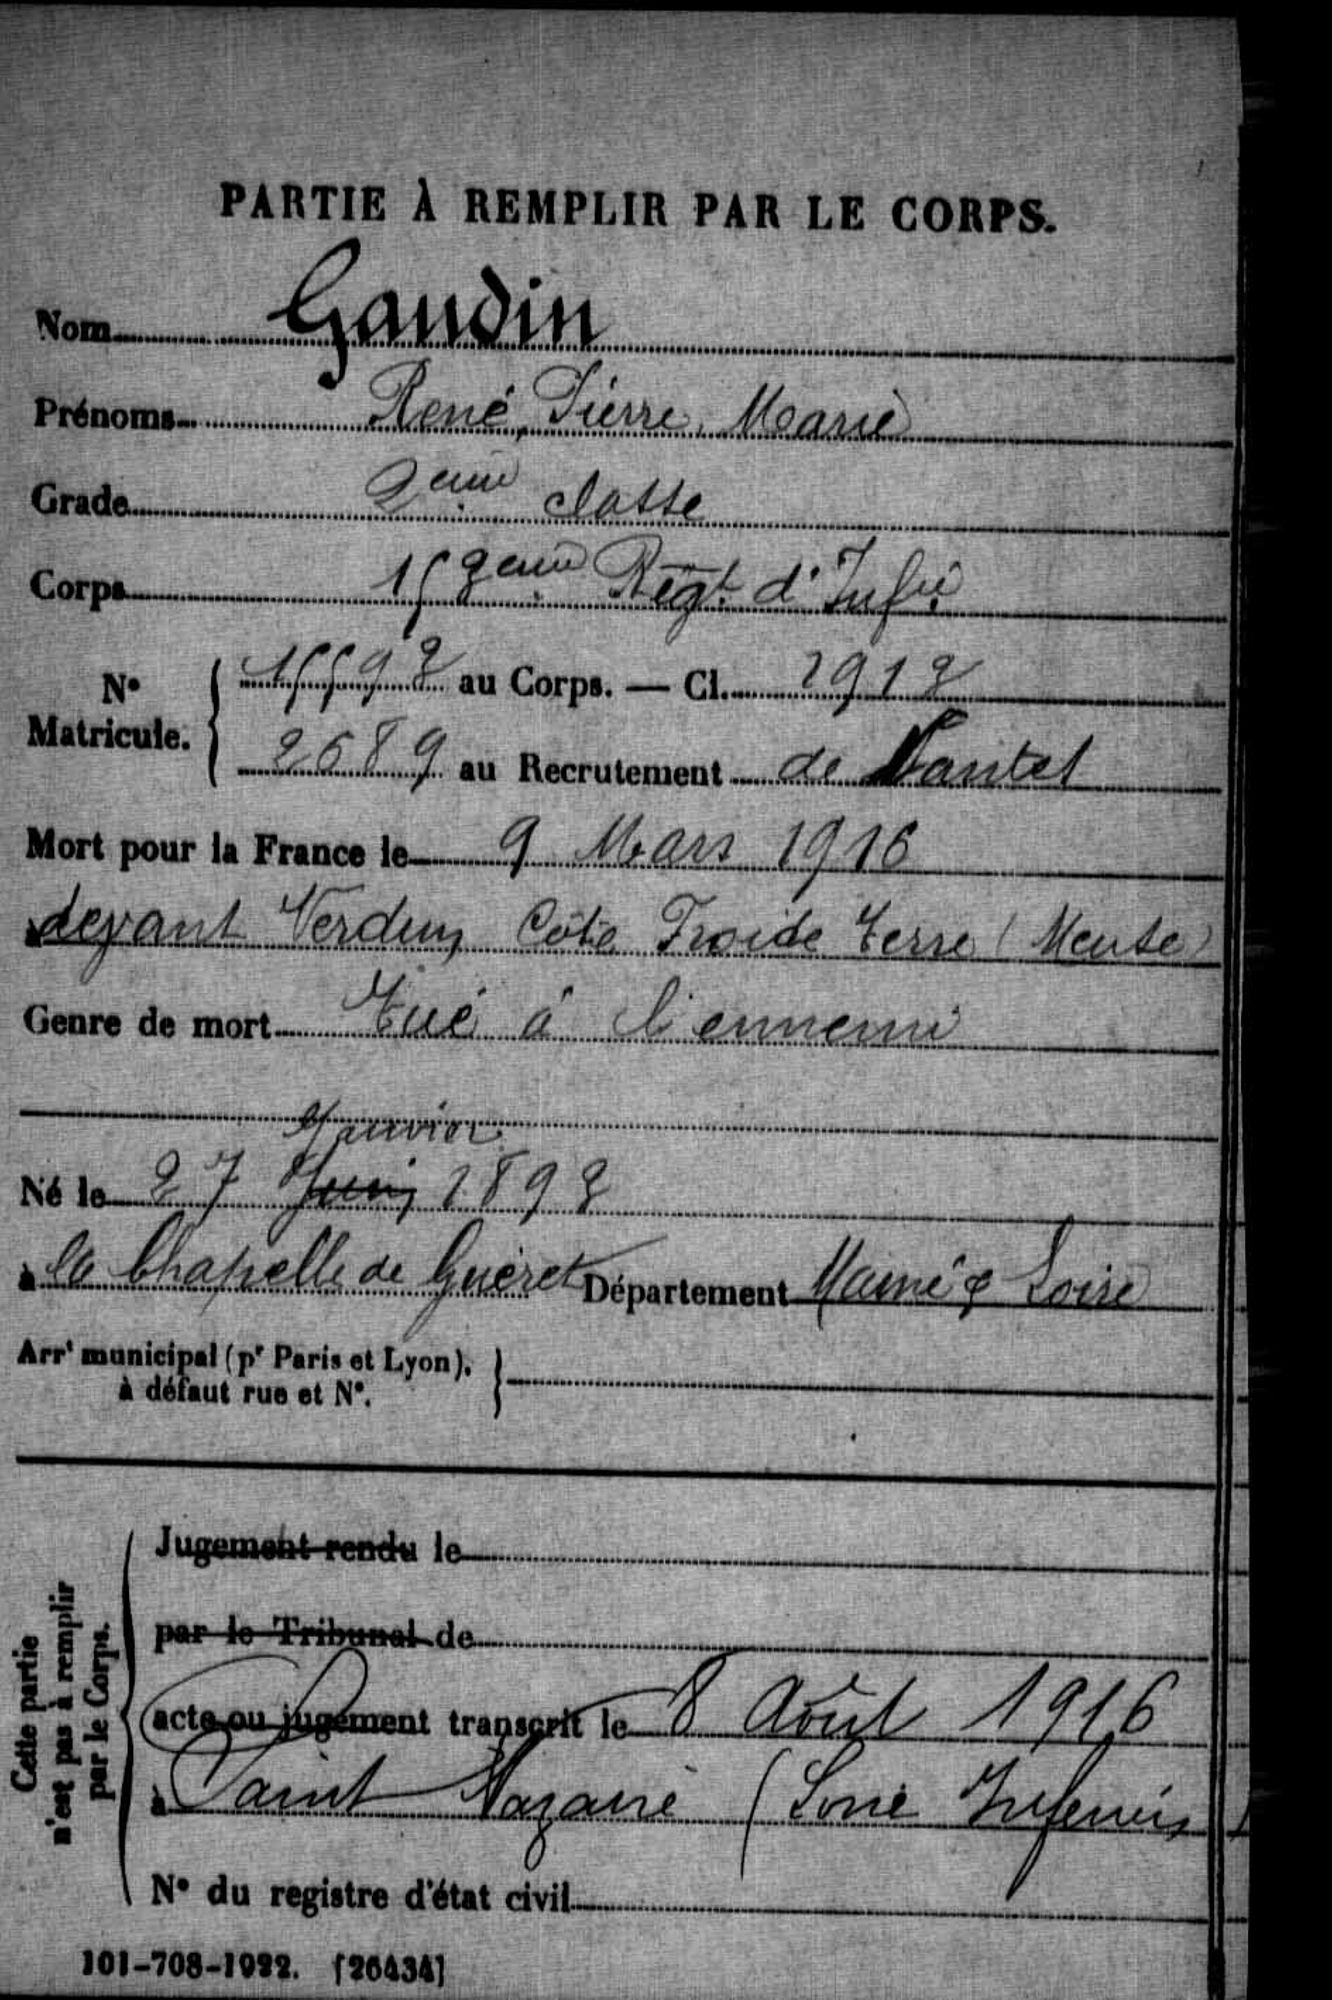 PARTIE À REMPLIR PAR LE CORPS.
Nom Gaudin
Prénoms René, Pierre, Marie
Grade 2eme classe
Corps 152eme Régt. d'Infie
N° Matricule. 15592 au Corps. — Cl. 1912
2689 au Recrutement de Nantes
Mort pour la France le 9 Mars 1916
devant Verdun, Côte Froide terre (Meuse)
Genre de mort Tué à l'ennemi
Janvier
Né le 27 Juin 1892
à la Chapelle de Guéret Département Maine & Loire
Arrt municipal (pr Paris et Lyon),
à défaut rue et N°.
Cette partie
n'est pas à remplir
par le Corps.
Jugement rendu le
par le Tribunal de
acte ou jugement transcrit le 8 Août 1916
à Saint Nazaire (Loire Inferieure)
N° du registre d'état civil
101-708-1922. [26434]